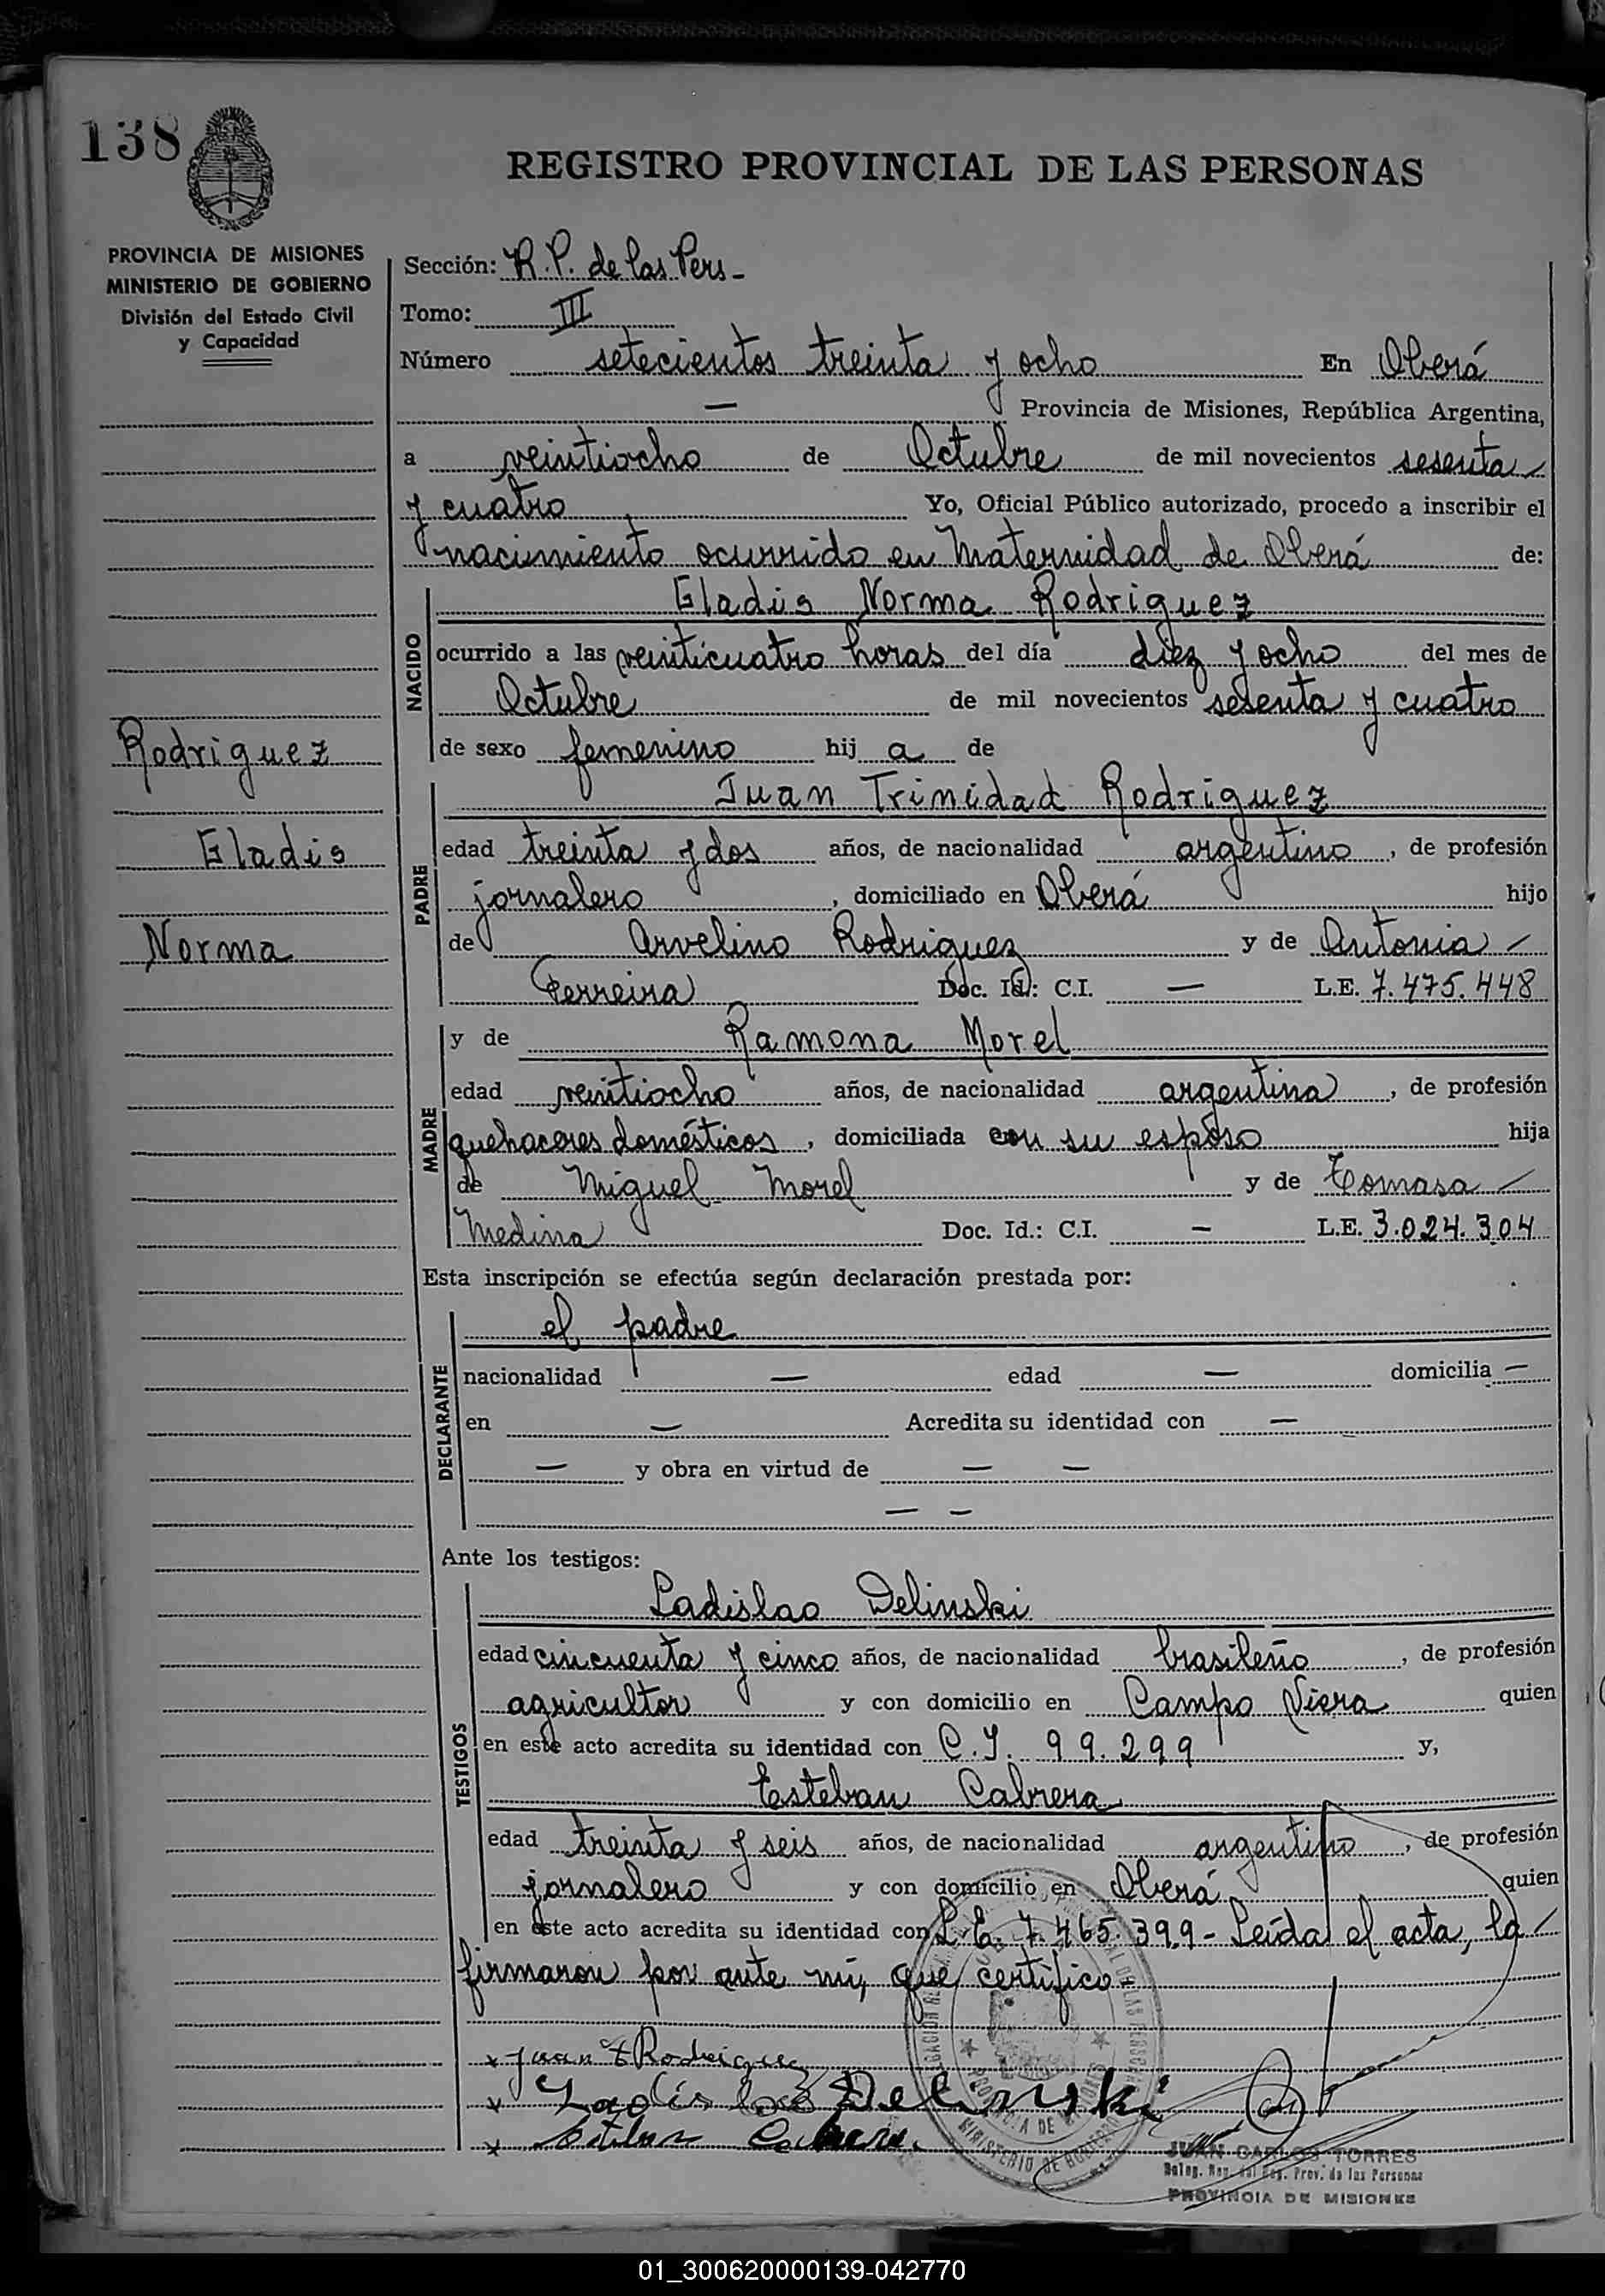 138
REGISTRO PROVINCIAL DE LAS PERSONAS
PROVINCIA DE MISIONES
MINISTERIO DE GOBIERNO
División del Estado Civil
y Capacidad
Sección: R.P. de las Pers-
Tomo: III
Número setecientos treinta y ocho En Oberá
— Provincia de Misiones, República Argentina,
a veintiocho de Octubre de mil novecientos sesenta
y cuatro Yo, Oficial Público autorizado, procedo a inscribir el
nacimiento ocurrido en Maternidad de Oberá de:
NACIDO
Gladis Norma Rodriguez
ocurrido a las veinticuatro horas del día diez y ocho del mes de
Octubre de mil novecientos sesenta y cuatro
de sexo femenino hij a de
Rodriguez
Gladis
Norma
PADRE
Juan Trinidad Rodriguez
edad treinta y dos años, de nacionalidad argentino, de profesión
jornalero, domiciliado en Oberá hijo
de Arvelino Rodriguez y de Antonia
Ferreira Doc. Id.: C.I. — L.E. 7.475.448
MADRE
y de Ramona Morel
edad veintiocho años, de nacionalidad argentina, de profesión
quehaceres domésticos, domiciliada con su esposo hija
de Miguel Morel y de Tomasa
Medina Doc. Id.: C.I. — L.E. 3.024.304
Esta inscripción se efectúa según declaración prestada por:
DECLARANTE
el padre
nacionalidad — edad — domicilia —
en — Acredita su identidad con —
— y obra en virtud de — —
— —
Ante los testigos:
TESTIGOS
Ladislao Delinski
edad cincuenta y cinco años, de nacionalidad brasileño, de profesión
agricultor y con domicilio en Campo Viera quien
en este acto acredita su identidad con C.I. 99.299 y,
Esteban Cabrera
edad treinta y seis años, de nacionalidad argentino, de profesión
jornalero y con domicilio en Oberá quien
en este acto acredita su identidad con L.E. 7.465.399- Leída el acta, la
firmaron por ante mí, que certifico-
x Juan T Rodriguez
x Ladislao Delinski
x Esteban Cabrera
MINISTERIO DE GOBIERNO
JUAN CARLOS TORRES
Deleg. Reg. del Reg. Prov. de las Personas
PROVINCIA DE MISIONES
01_300620000139-042770